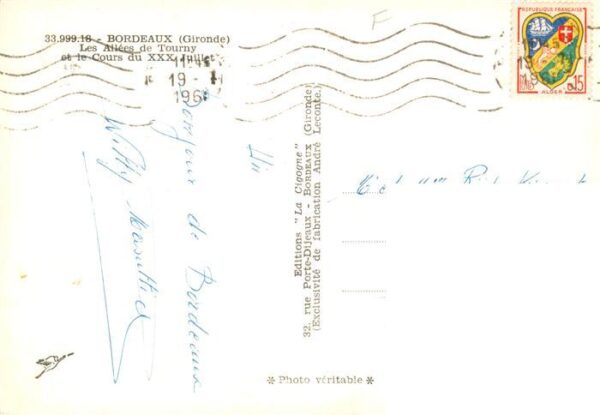 33.999.18 - BORDEAUX (Gironde)
Les Allées de Tourny
et le Cours du XXX Juillet
F
11H45
19 - 1
196
RÉPUBLIQUE FRANÇAISE
0,15
POSTES
ALGER
Bonjour de Bordeaux
Willy
Editions "La Cigogne"
32, rue Porte-Dijeaux - BORDEAUX (Gironde)
(Exclusivité de fabrication André Leconte)
* Photo véritable *